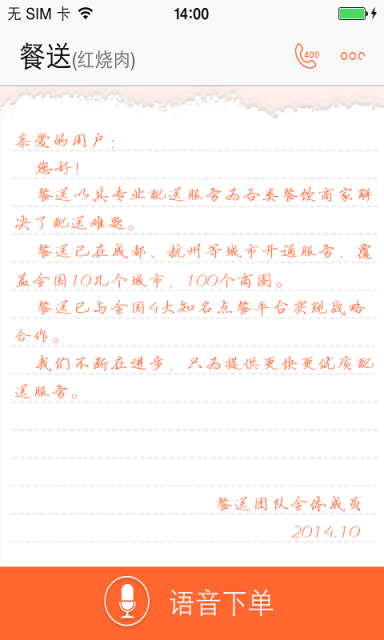 无 SIM 卡 14:00
餐送(红烧肉) 400
亲爱的用户：
您好！
餐送以其专业配送服务为各类餐饮商家解
决了配送难题。
餐送已在成都、杭州等城市开通服务，覆
盖全国10几个城市，100个商圈。
餐送已与全国4大知名点餐平台实现战略
合作。
我们不断在进步，只为提供更快更优质配
送服务。
餐送团队全体成员
2014.10
语音下单